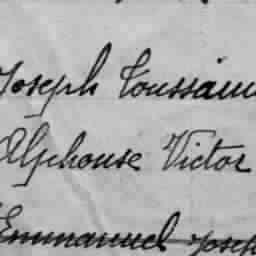 Joseph Toussain
Alphonse Victor
Emmanuel Joseph